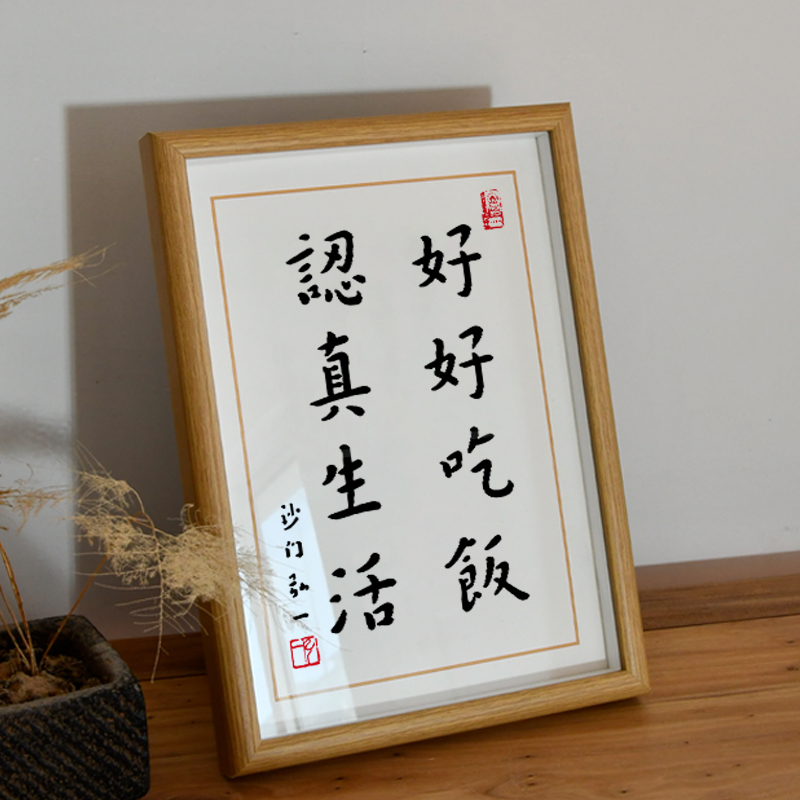 好好吃飯
認真生活
沙门弘一